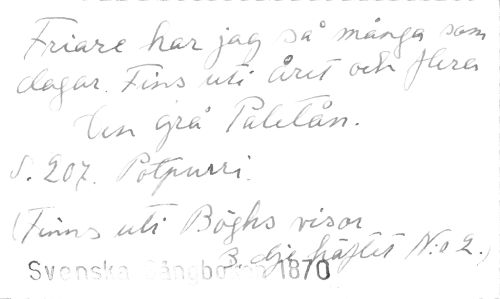 Friare har jag så många som
dagar. Fins uti året och flera
Den grå Paletån.
S. 207. Potpurri.
(Finns uti Böghs visor
3. dje häftet N:o 2.)
Svenska Sångboken 1870